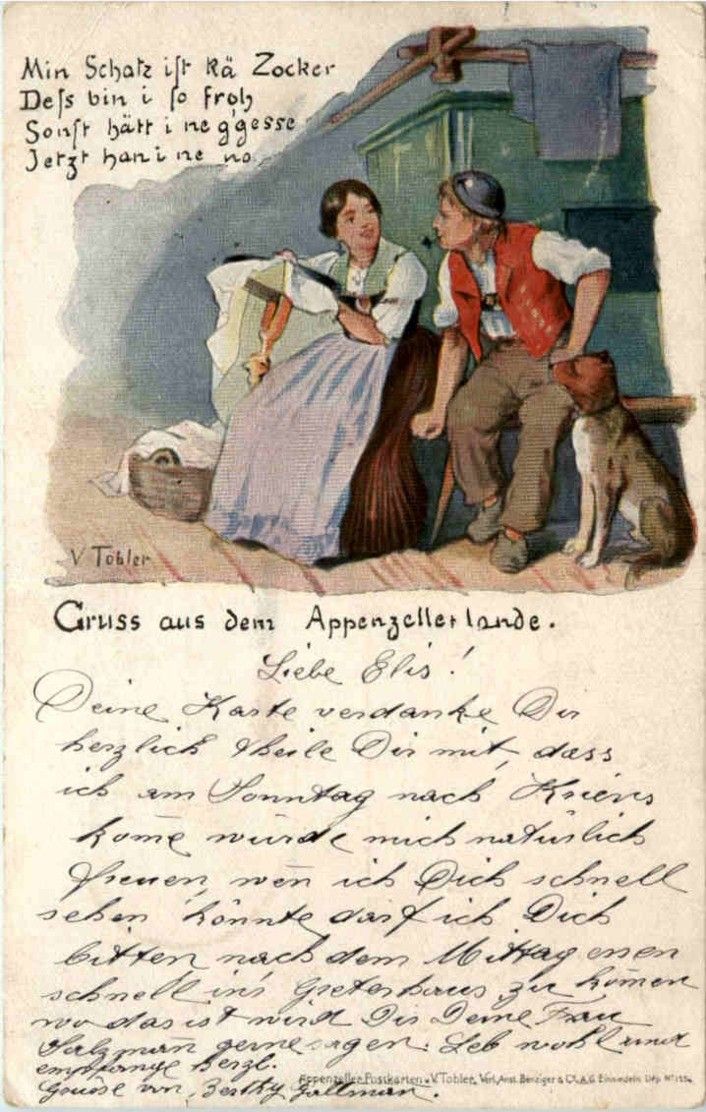 Min Schatz ist kä Zocker
Dess bin i so froh
Sonst hätt i ne g'gesse
Jetzt han i ne no.
V Tobler
Gruss aus dem Appenzellerlande.
Liebe Elis!
Deine Karte verdanke Dir
herzlich theile Dir mit, dass
ich am Sonntag nach Kriens
kome würde mich natürlich
freuen, wen ich Dich schnell
sehen könnte darf ich Dich
bitten nach dem Mittag enen
schnell in's zu komen
wo das ist wird Dir Deine Frau
Salzman gerne sagen. Leb wohl und
empfange herzl.
Grüsse von
Appenzeller Postkarten v. V. Tobler, Verl. Anst. Benziger & Co. A.G. Einsiedeln Dép. No